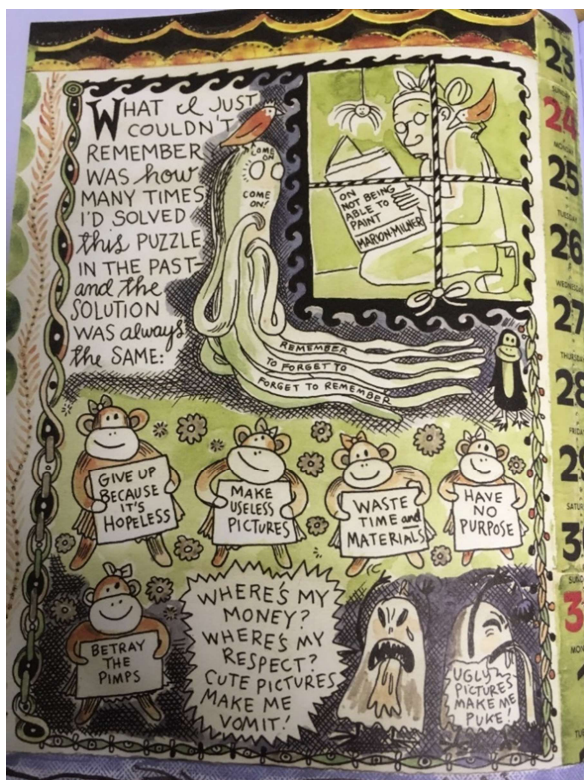 WHAT I JUST
COULDN'T
REMEMBER
WAS how
MANY TIMES
I'D SOLVED
this PUZZLE
IN THE PAST-
and the
SOLUTION
WAS always
the SAME:
COME
ON
COME
ON!
ON
NOT BEING
ABLE TO
PAINT
MARION MILNER
REMEMBER
TO FORGET TO
FORGET TO REMEMBER
GIVE UP
BECAUSE
IT'S
HOPELESS
MAKE
USELESS
PICTURES
WASTE
TIME and
MATERIALS
HAVE
NO
PURPOSE
BETRAY
THE
PIMPS
WHERE'S MY
MONEY?
WHERE'S MY
RESPECT?
CUTE PICTURES
MAKE ME
VOMIT!
UGLY
PICTURES
MAKE ME
PUKE!
23
24
MONDAY
25
TUESDAY
26
27
THURSDAY
28
FRIDAY
29